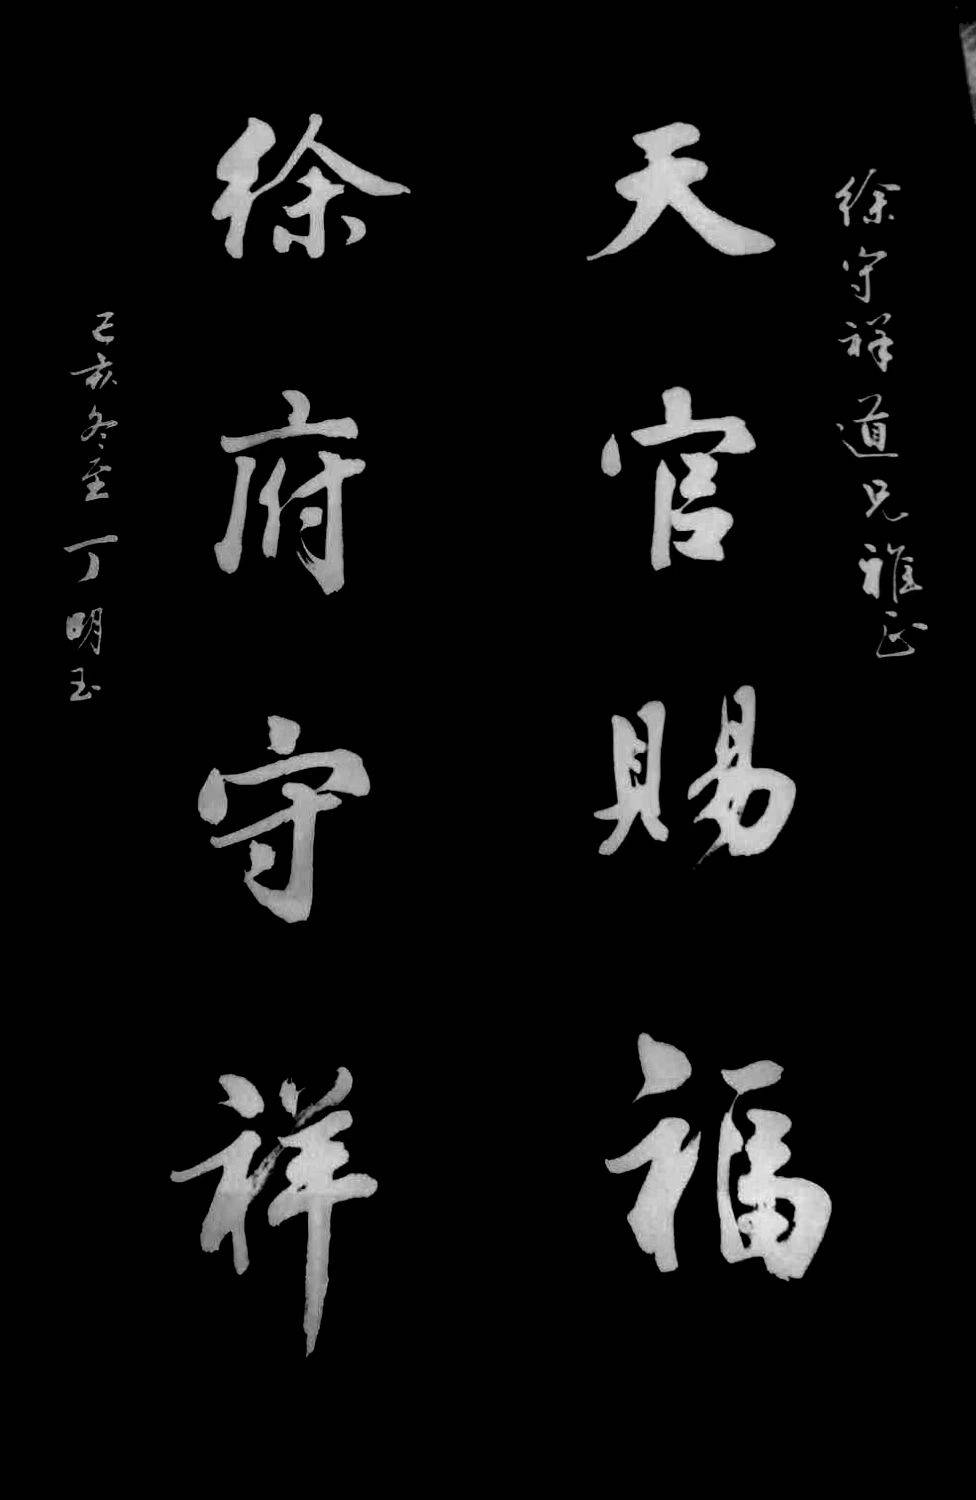 徐守祥道兄雅正
天官賜福
徐府守祥
己亥冬至丁明玉